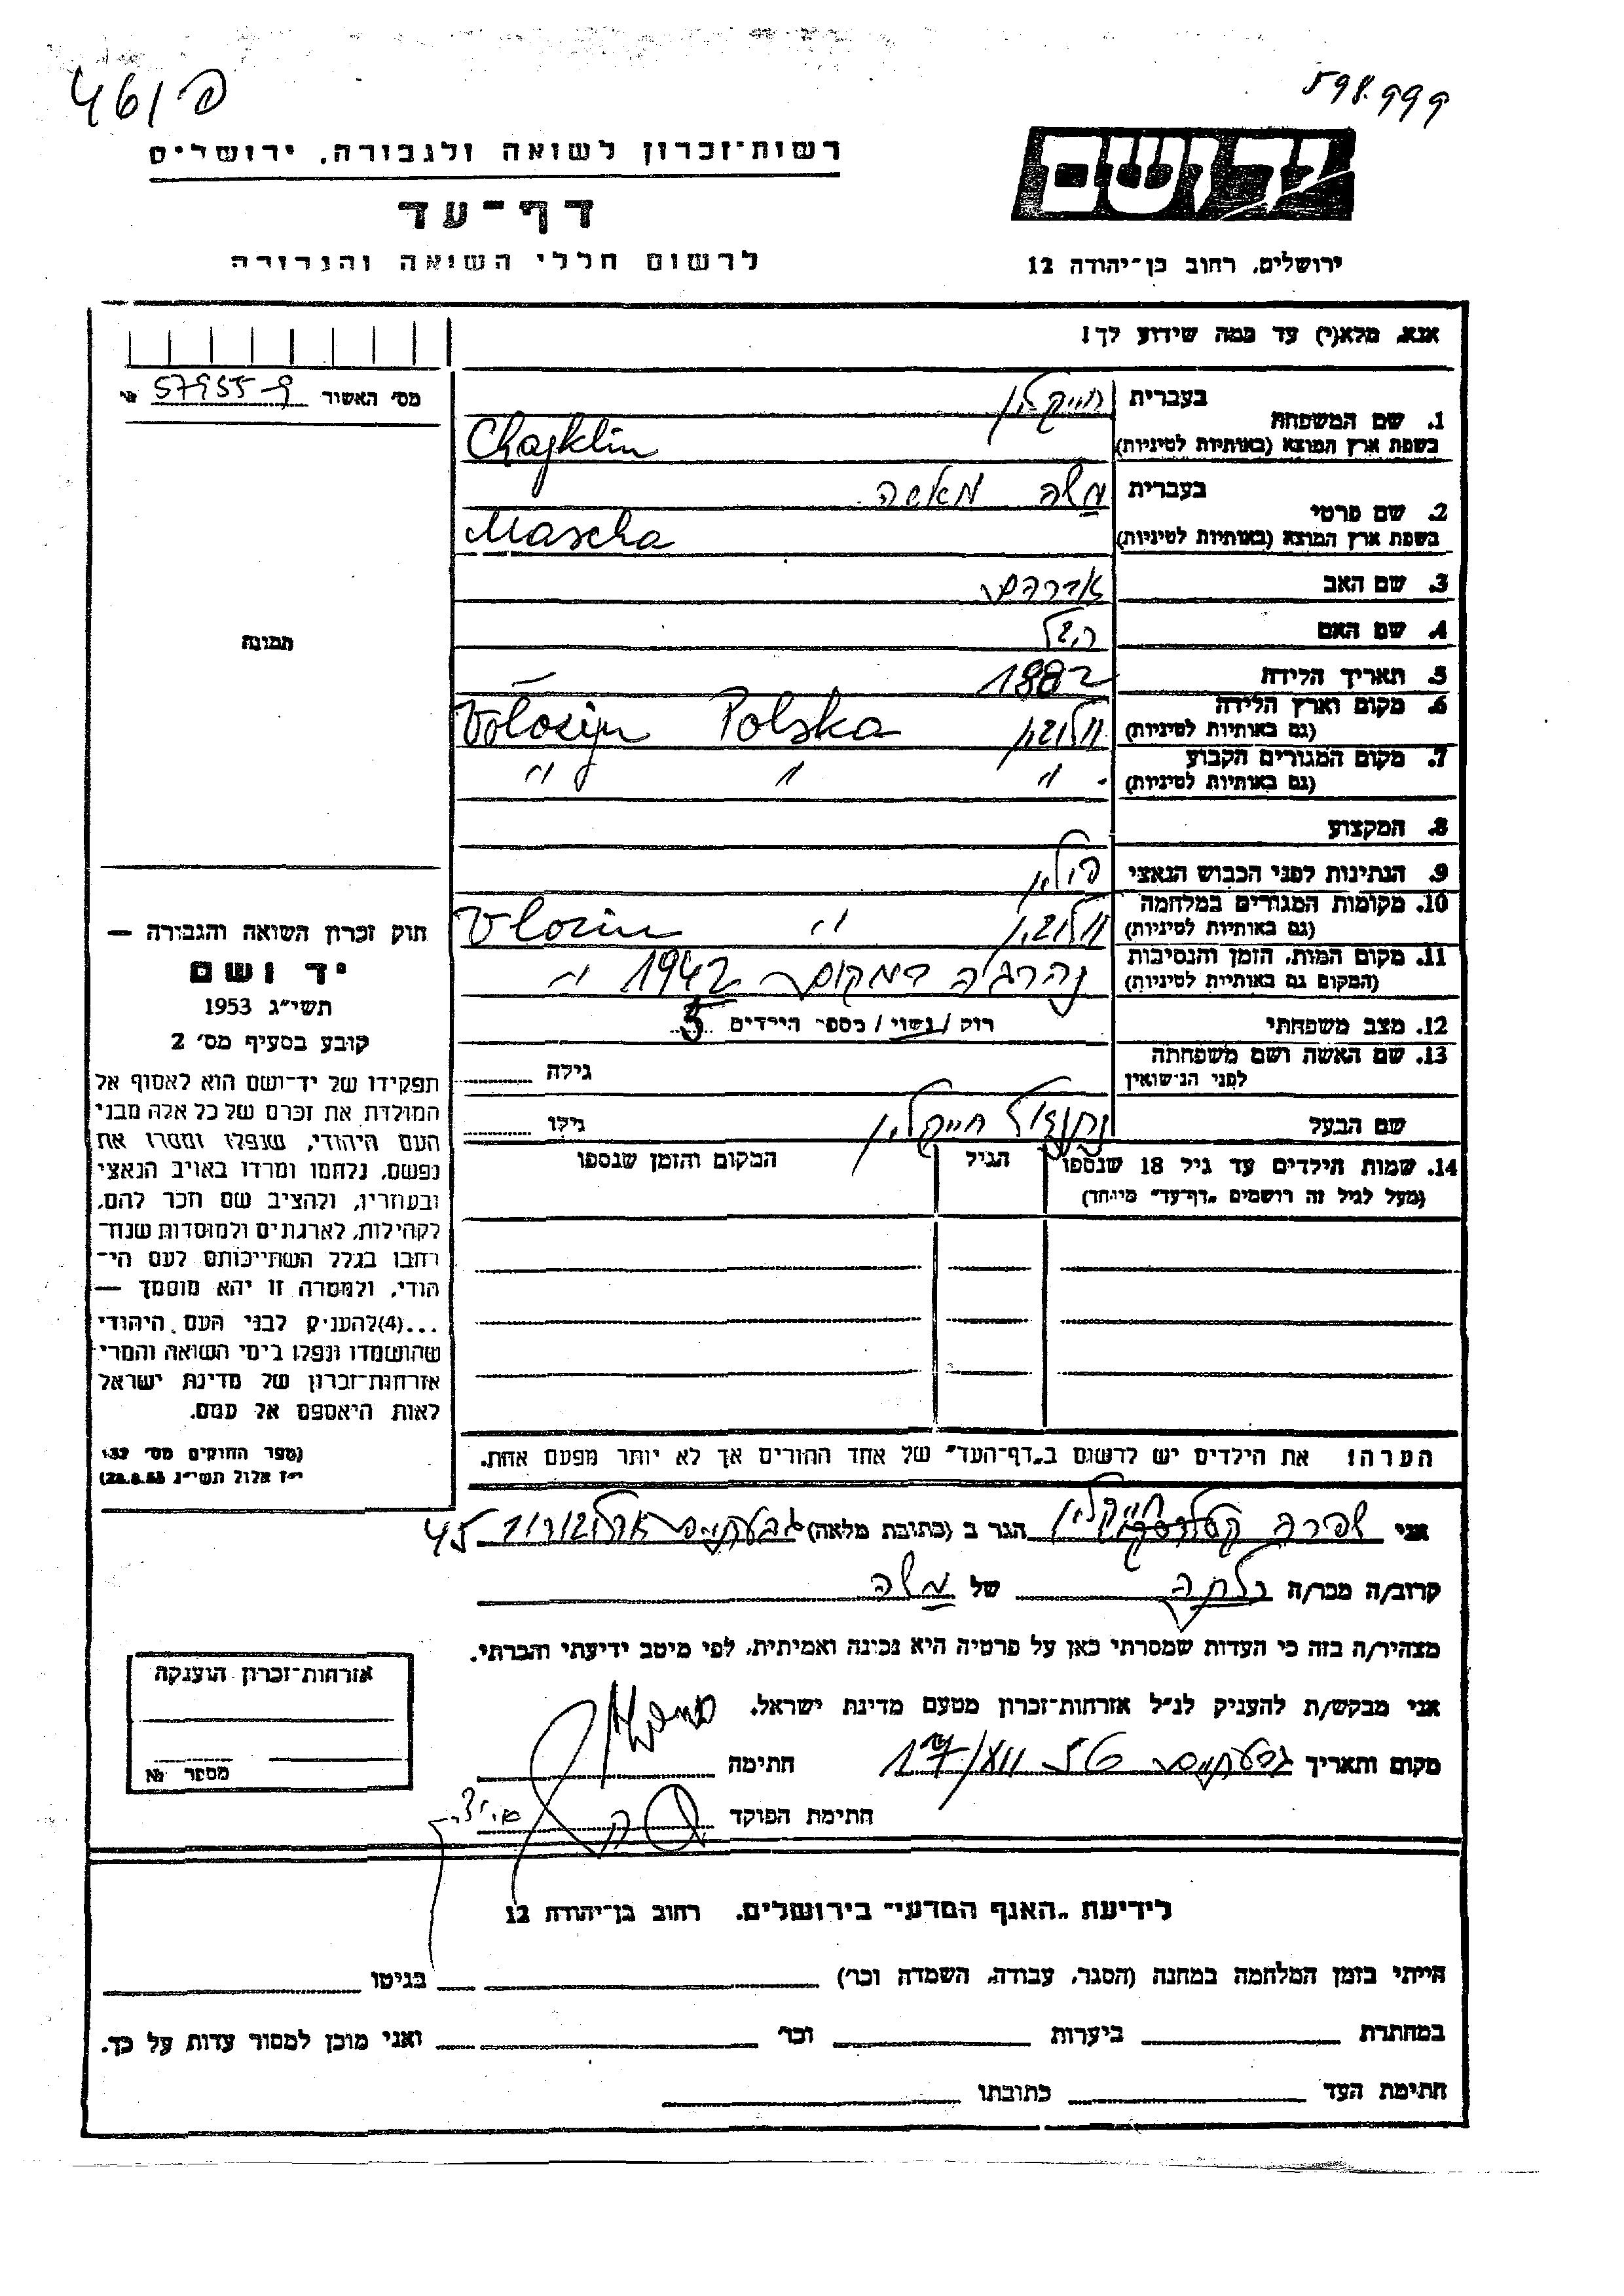 461 פ
598.999
רשות־זכרון לשואה ולגבורה, ירושלים
יד ושם
דף־עד
לרשום חללי השואה והגבורה
ירושלים, רחוב בן־יהודה 12
אנא, מלא(י) עד כמה שידוע לך!
מס׳ האשור 57955-9 №
1. שם המשפחה בעברית חייקלין
בשפת ארץ המוצא (באותיות לטיניות) Chajklin
2. שם פרטי בעברית משה מאשה
בשפת ארץ המוצא (באותיות לטיניות) Mascha
3. שם האב אברהם
4. שם האם
תמונה
5. תאריך הלידה 1882
6. מקום וארץ הלידה וולוז׳ין Polska Volozijn
(גם באותיות לטיניות)
7. מקום המגורים הקבוע " " "
(גם באותיות לטיניות)
8. המקצוע
9. הנתינות לפני הכבוש הנאצי פולין
10. מקומות המגורים במלחמה וולוז׳ין " Vlozin
(גם באותיות לטיניות)
11. מקום המות, הזמן והנסיבות נהרגה במקום 1942 "
(המקום גם באותיות לטיניות)
12. מצב משפחתי רווק / נשוי / מספר הילדים 5
13. שם האשה ושם משפחתה גילה
לפני הנישואין
שם הבעל חייקלין גילו
14. שמות הילדים עד גיל 18 שנספו הגיל המקום והזמן שנספו
(מעל לגיל זה רושמים „דף־עד" מיוחד)
חוק זכרון השואה והגבורה —
יד ושם
תשי״ג 1953
קובע בסעיף מס׳ 2
תפקידו של יד־ושם הוא לאסוף אל
המולדת את זכרם של כל אלה מבני
העם היהודי, שנפלו ומסרו את
נפשם, נלחמו ומרדו באויב הנאצי
ובעוזריו, ולהציב שם וזכר להם,
לקהילות, לארגונים ולמוסדות שנח־
רבו בגלל השתייכותם לעם הי־
הודי, ולמטרה זו יהא מוסמך —
...(4)להעניק לבני העם היהודי
שהושמדו ונפלו בימי השואה והמרי
אזרחות־זכרון של מדינת ישראל
לאות היאספם אל עמם.
(ספר החוקים מס׳ 132
י״ז אלול תשי״ג 28.8.53)
הערה! את הילדים יש לרשום ב„דף־העד" של אחד ההורים אך לא יותר מפעם אחת.
אני שפרה חייקלין הגר ב (כתובת מלאה) גבעתיים ארלוזורוב 45
קרוב/ה מכר/ה כלתה של משה
מצהיר/ה בזה כי העדות שמסרתי כאן על פרטיה היא נכונה ואמיתית, לפי מיטב ידיעתי והכרתי.
אני מבקש/ת להעניק לנ״ל אזרחות־זכרון מטעם מדינת ישראל.
מקום ותאריך גבעתיים 17/XII חתימה
חתימת הפוקד
אזרחות־זכרון הוענקה
מספר №
לידיעת „האגף המדעי" בירושלים, רחוב בן־יהודה 12
הייתי בזמן המלחמה במחנה (הסגר, עבודה, השמדה וכו׳) בגיטו
במחתרת ביערות וכו׳ ואני מוכן למסור עדות על כך.
חתימת העד כתובתו